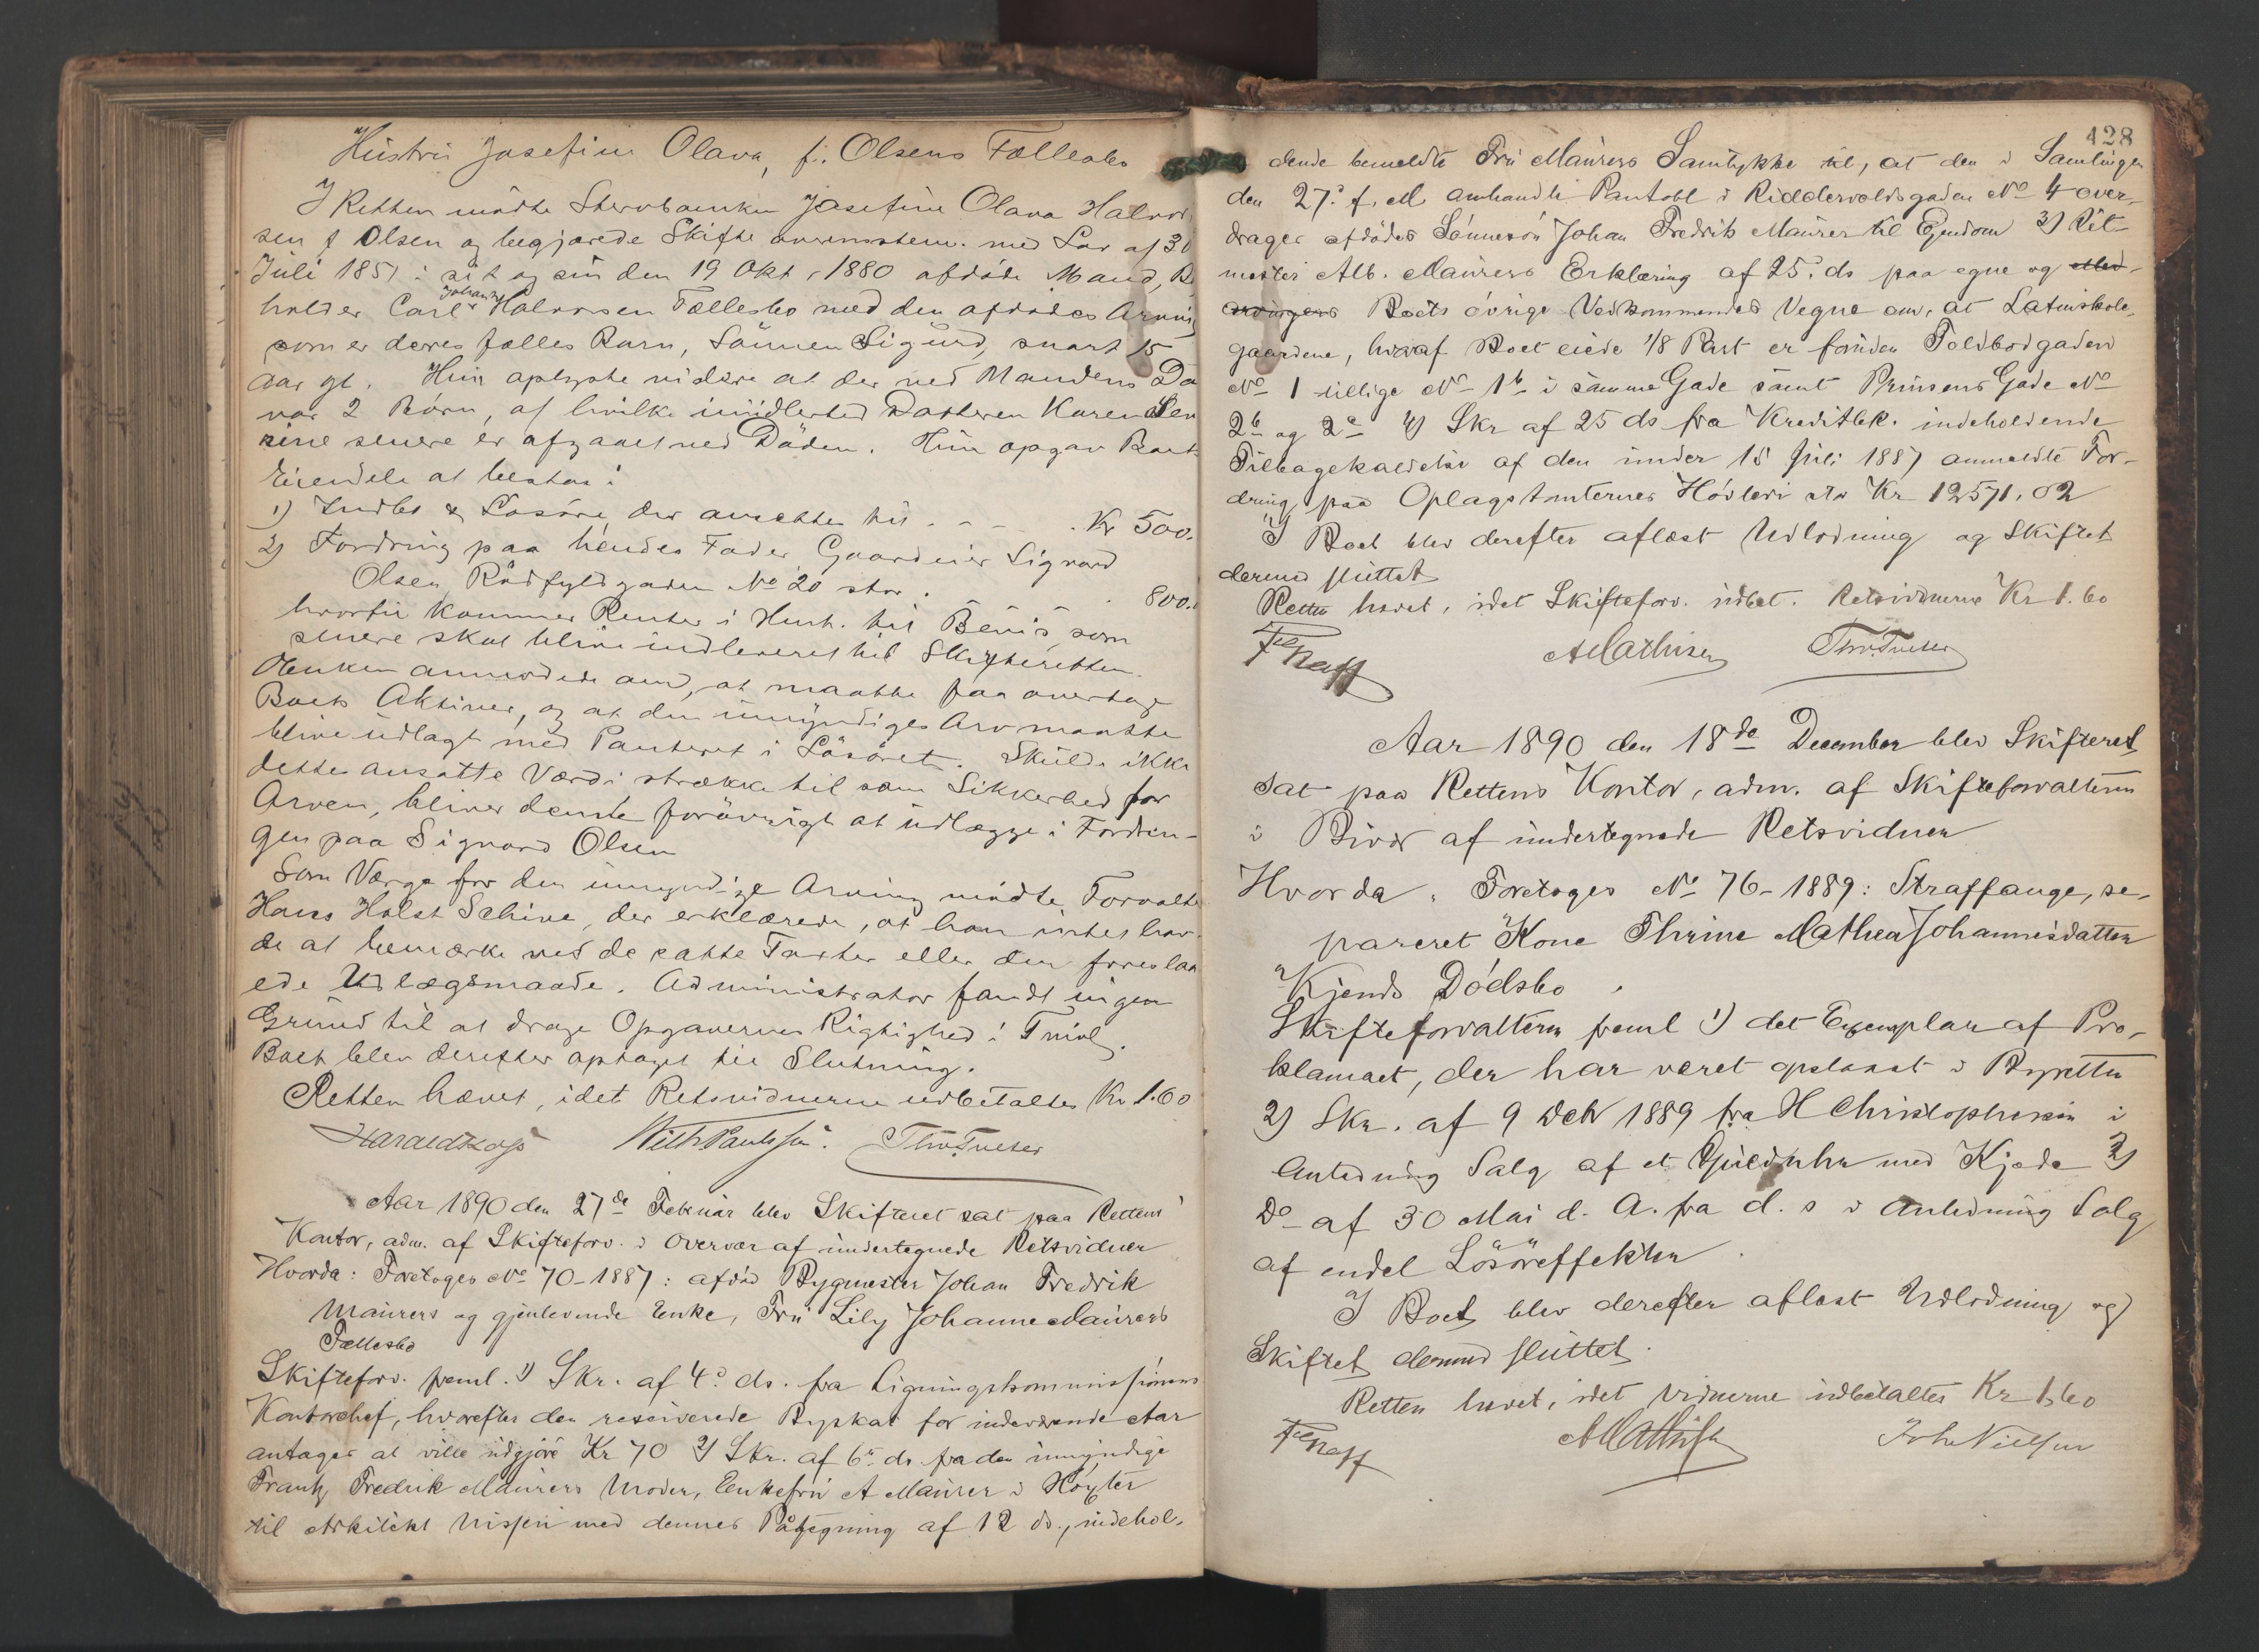 Hustru Josefine Olava, f. Olsens Fællesbo
I Retten mødte Stervboenken Josefine Olava Halvor
sen f Olsen og begjærede Skifte overensstem. med Lov af 30
Juli 1851 i sit og sin den 19 Okt. 1880 afdøde Mand, B
holder Carl Johan Halvorsen Fællesbo med den afdødes Arving
som er deres fælles Barn, Sønnen Sigurd, snart 15
Aar gl. Hun oplyste videre at der ved Mandens Dø
var 2 Børn, af hvilke imidlertid Datteren Karen
sine senere er afgaaet ved Døden. Hun opgav Boets
Eiendele at bestaa i
1) Indbo & Løsøre, der ansettes til . - - . Kr 500.
2) Fordring paa hendes Fader Gaardeier Sigvard
Olsen Rødfyldgaden No 20 stor . . 800.
hvorfor kommer Renter i Henh. til Bevis, som
senere skal blive indleveret til Skifteretten.
Enken anmodede om, at maatte faa overtage
Boets Aktiver, og at den umyndiges Arv maatte
blive udlagt med Panteret i Løsøret. Skulde ikke
dettes ansatte Værdi strække til som Sikkerhed for
Arven, bliver denne forøvrigt at udlægge i Fordrin-
gen paa Sigvard Olsen
Som Værge for den umyndige Arving mødte Forvalte
Hans Holst Schive, der erklærede, at han intet hav-
de at bemærke ved de satte Taxter eller den foreslaa
ede Udlægsmaade. Administrator fandt ingen
Grund til at drage Opgavernes Rigtighed i Tvivl.
Boet blev derefter optaget til Slutning.
Retten hævet, idet Retsvidnerne udbetaltes Kr 1.60
Wilh Paulsen. Thv. Tucher
Aar 1890 den 27de Februar blev Skifteret sat paa Rettens
Kontor, adm. af Skifteforv. i Overvær af undertegnede Retsvidner
Hvorda: Foretoges No 70-1887: afdød Bygmester Johan Fredrik
Maurers og gjenlevende Enke, Fru Lily Johanne Maurers
Fællesbo
Skifteforv. freml. 1) Skr. af 4de ds. fra Ligningskommissionens
Kontorchef, hvorefter den reserverede Byskat for indeværende Aar
antages at ville udgjøre Kr 70 2) Skr. af 6te ds. fra den umyndige
Frantz Fredrik Maurers Moder, Enkefru A Maurer i Høxter
til Arkitekt Nissen med dennes Påtegning af 12 ds., indehol-
128
dende bemeldte Fru Maurers Samtykke til, at den i Samlingen
den 27de f. M. omhandlede Pantobl i Riddervoldsgaden No 4 over-
drages afdødes Sønnesøn Johan Fredrik Maurer til Ejendom 3) Rit-
mester Alb. Maurers Erklæring af 25de ds paa egne og
Boets øvrige Vedkommendes Vegne om, at Latinskole-
gaardene, hvoraf Boet eiede 1/8 Part er foruden Toldbodgaden
No 1 tillige No 1b i samme Gade samt Prinsens Gade No
2b og 2c 4) Skr af 25 ds fra Kreditbk. indeholdende
Tilbagekaldelse af den under 15 Juli 1887 anmeldte For-
dring paa Oplagstomternes Høvleri stor Kr 12571.02
I Boet blev derefter aflæst Udlodning og Skiftet
dermed sluttet
Retten hævet, idet Skifteforv. udbet. Retsvidnerne Kr 1.60
AMathisen Thv. Tucher
Aar 1890 den 18de December blev Skifteret
sat paa Rettens Kontor, adm. af Skifteforvalteren
i Bivær af undertegnede Retsvidner
Hvorda: Foretoges No 76-1889: Straffange, se-
pareret Kone Thrine Mathea Johannesdatter
Kjends Dødsbo.
Skifteforvalteren freml 1) det Exemplar af Pro-
klamaet, der har været opslaaet i Byretten
2) Skr. af 9 Debr 1889 fra H Christophersen i
Anledning Salg af et Guldur med Kjæde 3)
Do af 30 Mai d. A. fra d. s i Anledning Salg
af endel Løsøreffekter.
I Boet blev derefter aflæst Udlodning og
Skiftet dermed sluttet.
Retten hævet, idet Vidnerne udbetaltes Kr 1,60
AMathisen Joh. Nielsen